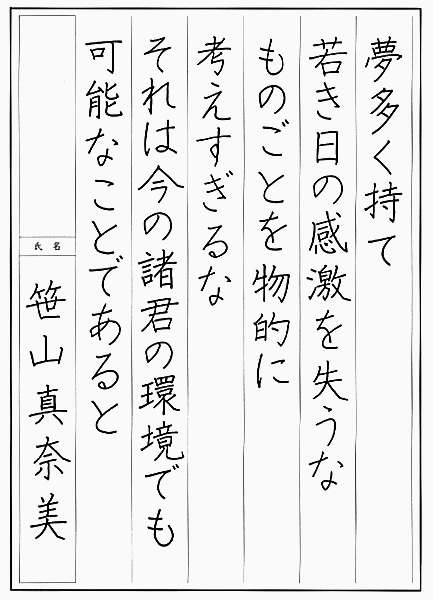 夢多く持て
若き日の感激を失うな
ものごとを物的に
考えすぎるな
それは今の諸君の環境でも
可能なことであると
氏名
笹山真奈美